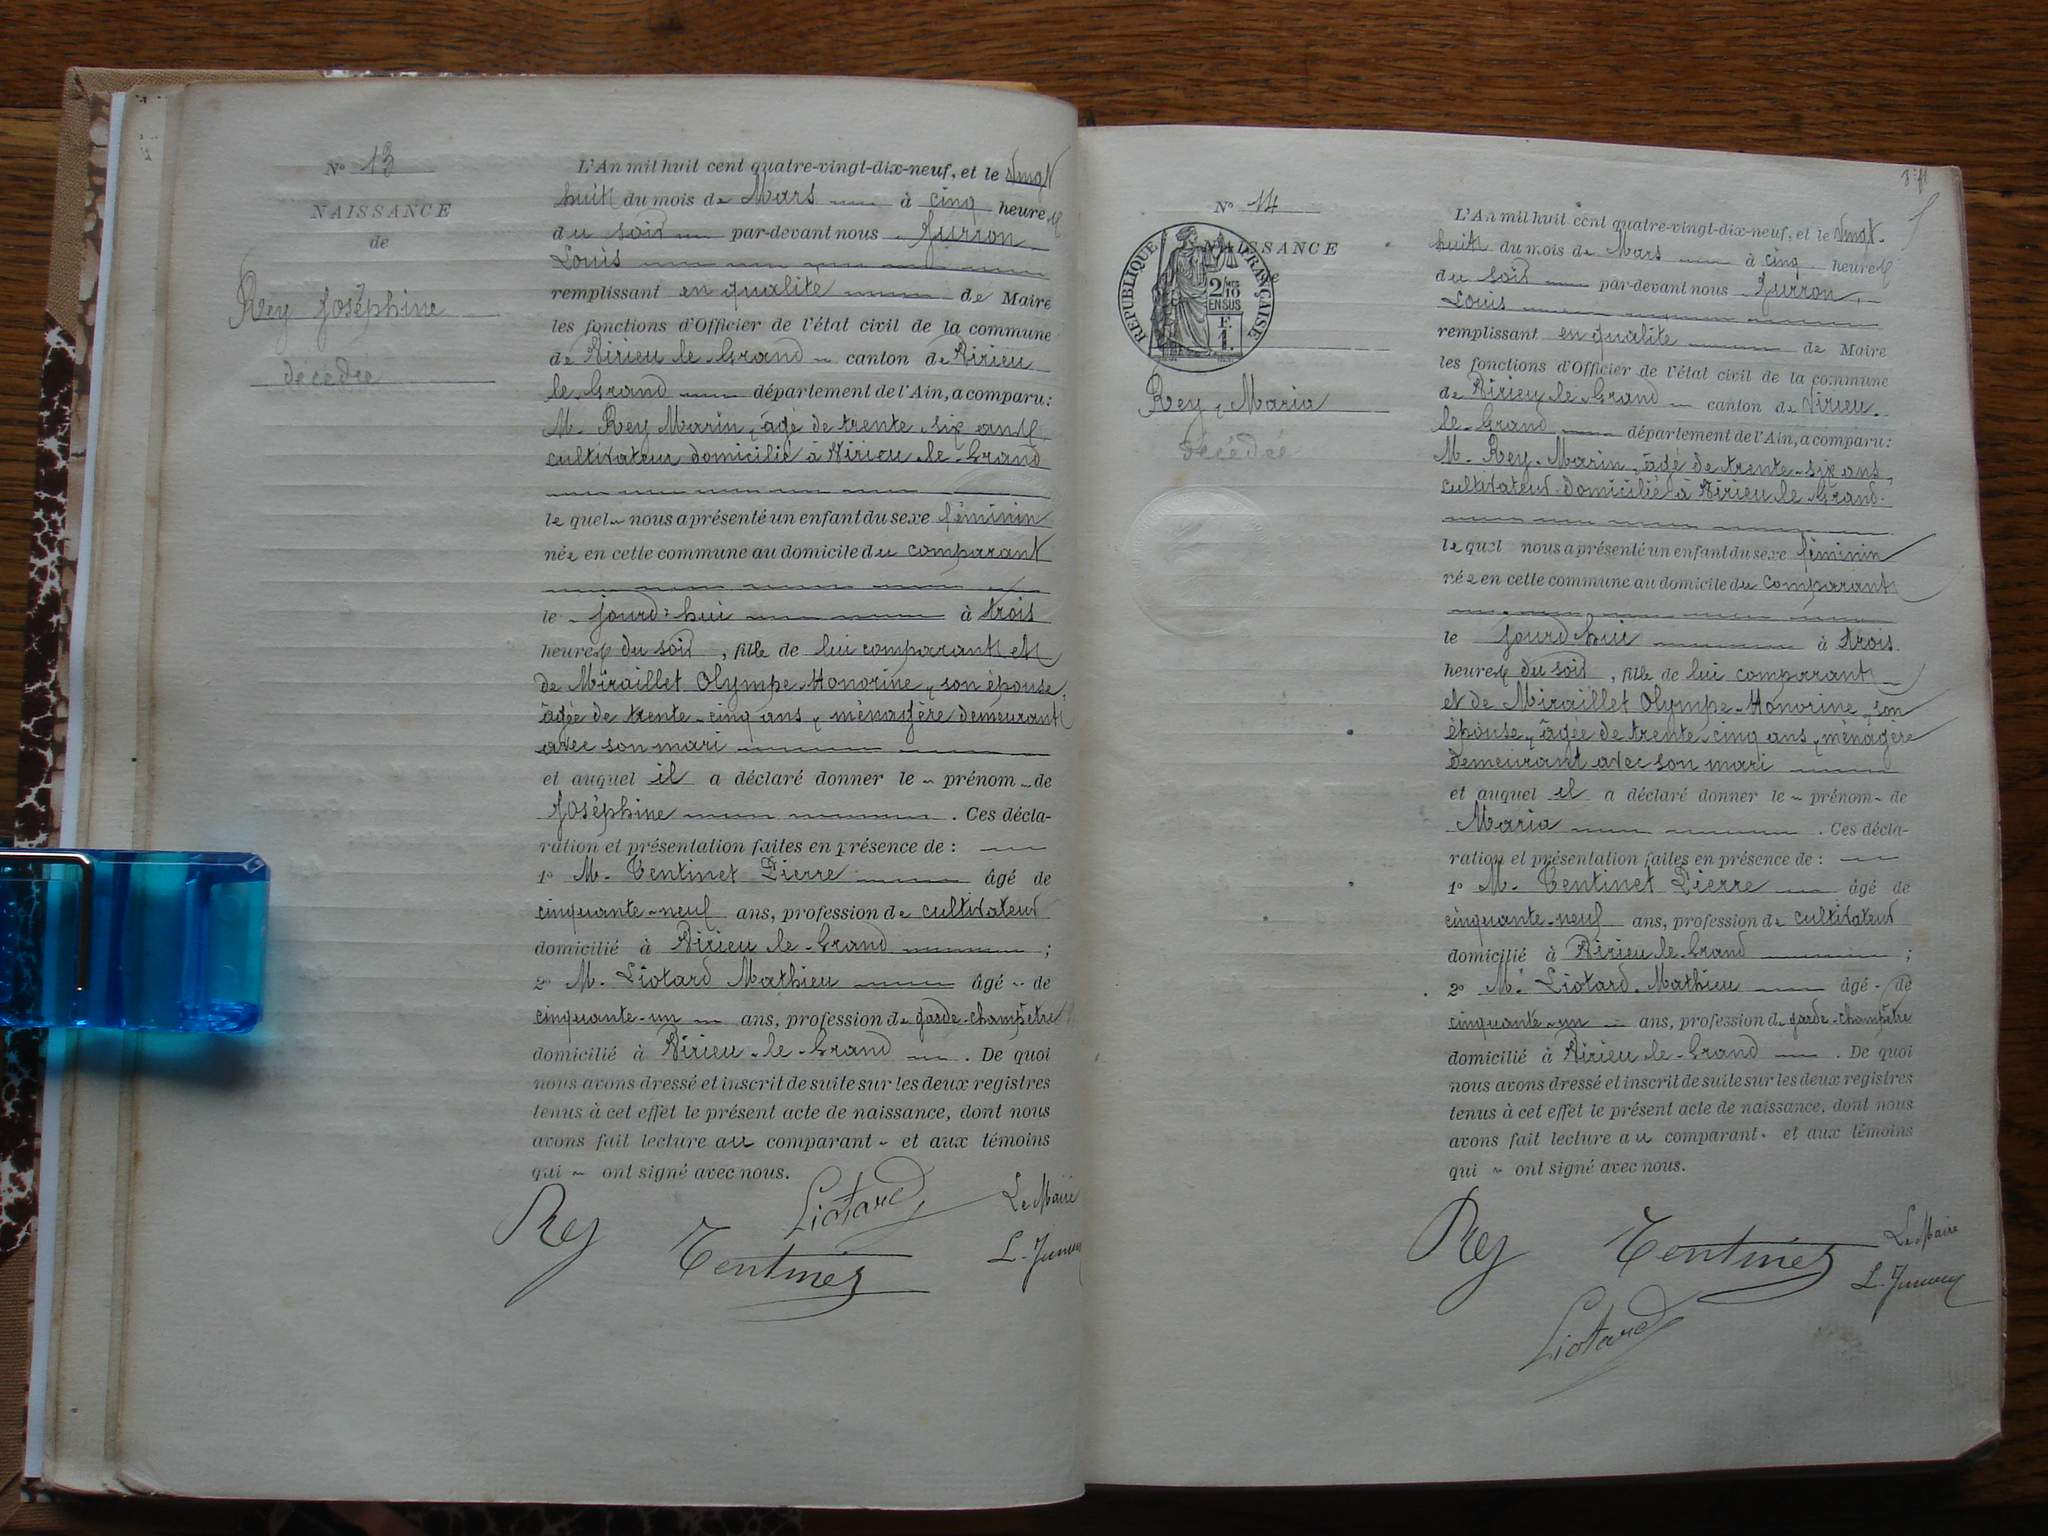 N° 13
NAISSANCE
de
Rey Joséphine
decédée
L'An mil huit cent quatre-vingt-dix-neuf, et le vingt
huit du mois de Mars à cinq heures
du soir par-devant nous
Louis
remplissant en qualité de Maire
les fonctions d'Officier de l'état civil de la commune
de Virieu le Grand canton de Virieu
le Grand département de l'Ain, a comparu :
M. Rey Marin, âgé de trente six ans,
cultivateur domicilié à Virieu le Grand
le quel nous a présenté un enfant du sexe féminin
née en cette commune au domicile du comparant
le jourd'hui à trois
heures du soir, fille de lui comparant et
de Miraillet Olympe Honorine, son épouse,
âgée de trente-cinq ans, ménagère demeurant
avec son mari
et auquel il a déclaré donner le prénom de
Joséphine . Ces décla-
ration et présentation faites en présence de :
1° M. Tentinet Pierre âgé de
cinquante-neuf ans, profession de cultivateur
domicilié à Virieu le Grand ;
2° M. Liotard Mathieu âgé de
cinquante-un ans, profession de garde-champêtre
domicilié à Virieu-le-Grand . De quoi
nous avons dressé et inscrit de suite sur les deux registres
tenus à cet effet le présent acte de naissance, dont nous
avons fait lecture au comparant et aux témoins
qui ont signé avec nous.
Liotard Le Maire
Rey Tentinet
N° 14
NAISSANCE
RÉPUBLIQUE FRANÇAISE
2/10
EN SUS
F.
1.
Rey, Maria
décédée
L'An mil huit cent quatre-vingt-dix-neuf, et le vingt-
huit du mois de Mars à cinq heures
du soir par-devant nous
Louis
remplissant en qualité de Maire
les fonctions d'Officier de l'état civil de la commune
de Virieu le Grand canton de Virieu
le Grand département de l'Ain, a comparu :
M. Rey Marin, âgé de trente-six ans,
cultivateur domicilié à Virieu le Grand
le quel nous a présenté un enfant du sexe féminin
née en cette commune au domicile du comparant
le jourd'hui à trois
heures du soir, fille de lui comparant
et de Miraillet Olympe-Honorine, son
épouse, âgée de trente-cinq ans, ménagère
demeurant avec son mari
et auquel il a déclaré donner le prénom de
Maria . Ces décla-
ration et présentation faites en présence de :
1° M. Tentinet Pierre âgé de
cinquante-neuf ans, profession de cultivateur
domicilié à Virieu le Grand ;
2° M. Liotard Mathieu âgé de
cinquante-un ans, profession de garde-champêtre
domicilié à Virieu le Grand . De quoi
nous avons dressé et inscrit de suite sur les deux registres
tenus à cet effet le présent acte de naissance, dont nous
avons fait lecture au comparant et aux témoins
qui ont signé avec nous.
Rey Tentinet Le Maire
Liotard